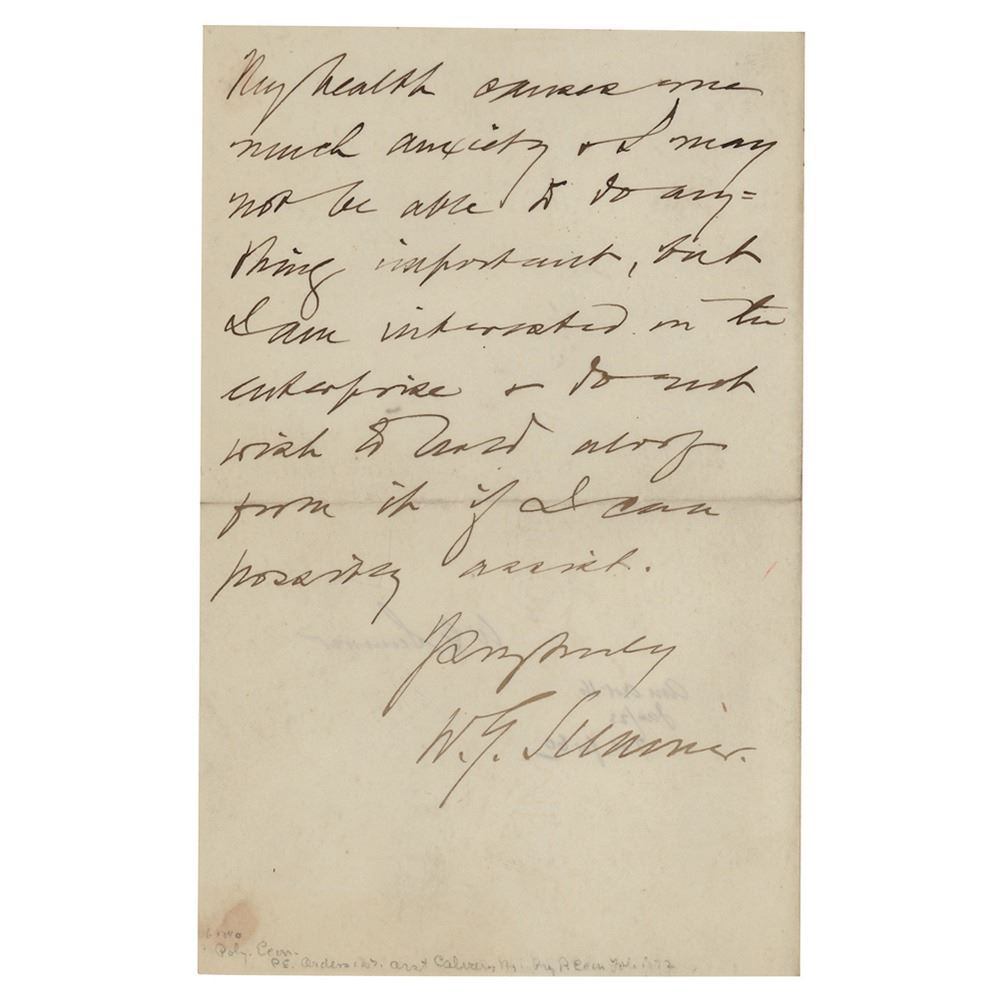 My health causes me
much anxiety & I may
not be able to do any=
thing important, but
I am interested in the
enterprise & do not
wish to hold aloof
from it if I can
possibly assist.
Yr very truly
W. G. Sumner.
Poly. Econ.